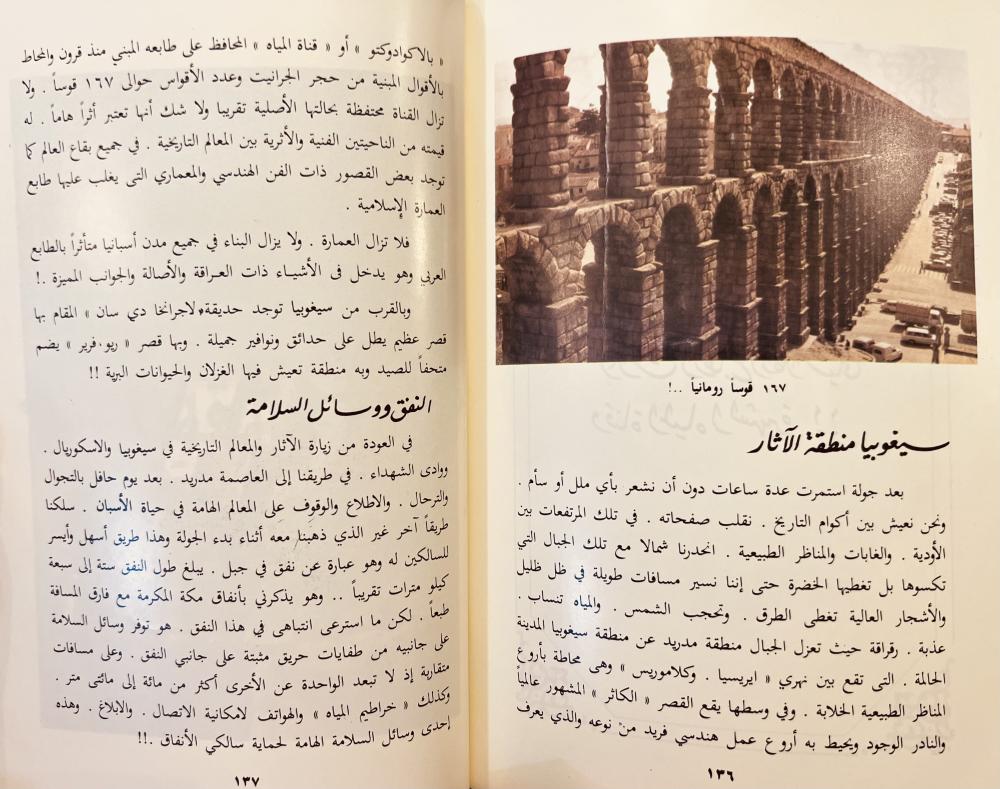 ١٦٧ قوساً رومانياً ..!
سيغوبيا منطقة الآثار
بعد جولة استمرت عدة ساعات دون أن نشعر بأي ملل أو سأم .
ونحن نعيش بين أكوام التاريخ . نقلب صفحاته . في تلك المرتفعات بين
الأودية . والغابات والمناظر الطبيعية . انحدرنا شمالا مع تلك الجبال التي
تكسوها بل تغطيها الخضرة حتى إننا نسير مسافات طويلة في ظل ظليل
والأشجار العالية تغطى الطرق . وتحجب الشمس . والمياه تنساب .
عذبة . رقراقة حيث تعزل الجبال منطقة مدريد عن منطقة سيغوبيا المدينة
الحالمة . التى تقع بين نهري « ايريسيا . وكلاموريس » وهى محاطة بأروع
المناظر الطبيعية الخلابة . وفي وسطها يقع القصر « الكاثر » المشهور عالمياً
والنادر الوجود ويحيط به أروع عمل هندسي فريد من نوعه والذي يعرف
١٣٦
« بالاكوادوكتو » أو « قناة المياه » المحافظ على طابعه المبني منذ قرون والمحاط
بالأقوال المبنية من حجر الجرانيت وعدد الأقواس حوالى ١٦٧ قوساً . ولا
تزال القناة محتفظة بحالتها الأصلية تقريبا ولا شك أنها تعتبر أثراً هاماً . له
قيمته من الناحيتين الفنية والأثرية بين المعالم التاريخية . في جميع بقاع العالم كما
توجد بعض القصور ذات الفن الهندسي والمعماري التى يغلب عليها طابع
العمارة الإسلامية .
فلا تزال العمارة . ولا يزال البناء في جميع مدن أسبانيا متأثراً بالطابع
العربي وهو يدخل فى الأشياء ذات العراقة والأصالة والجوانب المميزة .!
وبالقرب من سيغوبيا توجد حديقة «لاجرانخا دي سان » المقام بها
قصر عظيم يطل على حدائق ونوافير جميلة . وبها قصر « ريو.فرير » يضم
متحفاً للصيد وبه منطقة تعيش فيها الغزلان والحيوانات البرية !!
النفق ووسائل السلامة
في العودة من زيارة الآثار والمعالم التاريخية في سيغوبيا والاسكوريال .
ووادى الشهداء . في طريقنا إلى العاصمة مدريد . بعد يوم حافل بالتجوال
والترحال . والاطلاع والوقوف على المعالم الهامة في حياة الأسبان . سلكنا
طريقاً آخر غير الذي ذهبنا معه أثناء بدء الجولة وهذا طريق أسهل وأيسر
للسالكين له وهو عبارة عن نفق في جبل . يبلغ طول النفق ستة إلى سبعة
كيلو مترات تقريباً .. وهو يذكرني بأنفاق مكة المكرمة مع فارق المسافة
طبعاً . لكن ما استرعى انتباهى في هذا النفق . هو توفر وسائل السلامة
على جانبيه من طفايات حريق مثبتة على جانبي النفق . وعلى مسافات
متقاربة إذ لا تبعد الواحدة عن الأخرى أكثر من مائة إلى مائتى متر .
وكذلك « خراطيم المياه » والهواتف لامكانية الاتصال . والابلاغ . وهذه
إحدى وسائل السلامة الهامة لحماية سالكي الأنفاق .!!
١٣٧